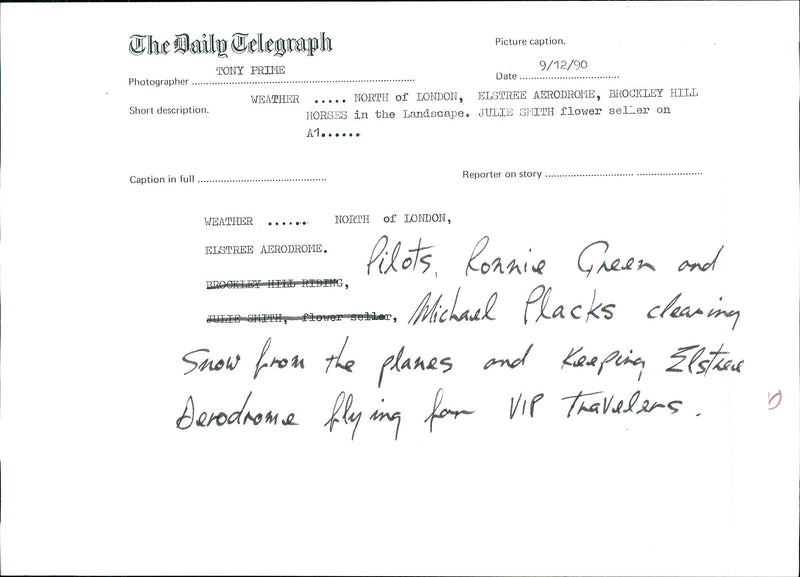 The Daily Telegraph
Picture caption.
Photographer TONY PRIME
Date 9/12/90
Short description. WEATHER ..... NORTH of LONDON, ELSTREE AERODROME, BROCKLEY HILL
HORSES in the Landscape. JULIE SMITH flower seller on
A1......
Caption in full ..........
Reporter on story ..........
WEATHER ...... NORTH of LONDON,
ELSTREE AERODROME. Pilots, Ronnie Green and
BROCKLEY HILL RIDING,
JULIE SMITH, flower seller, Michael Placks clearing
Snow from the planes and Keeping Elstree
Aerodrome flying for VIP Travelers.